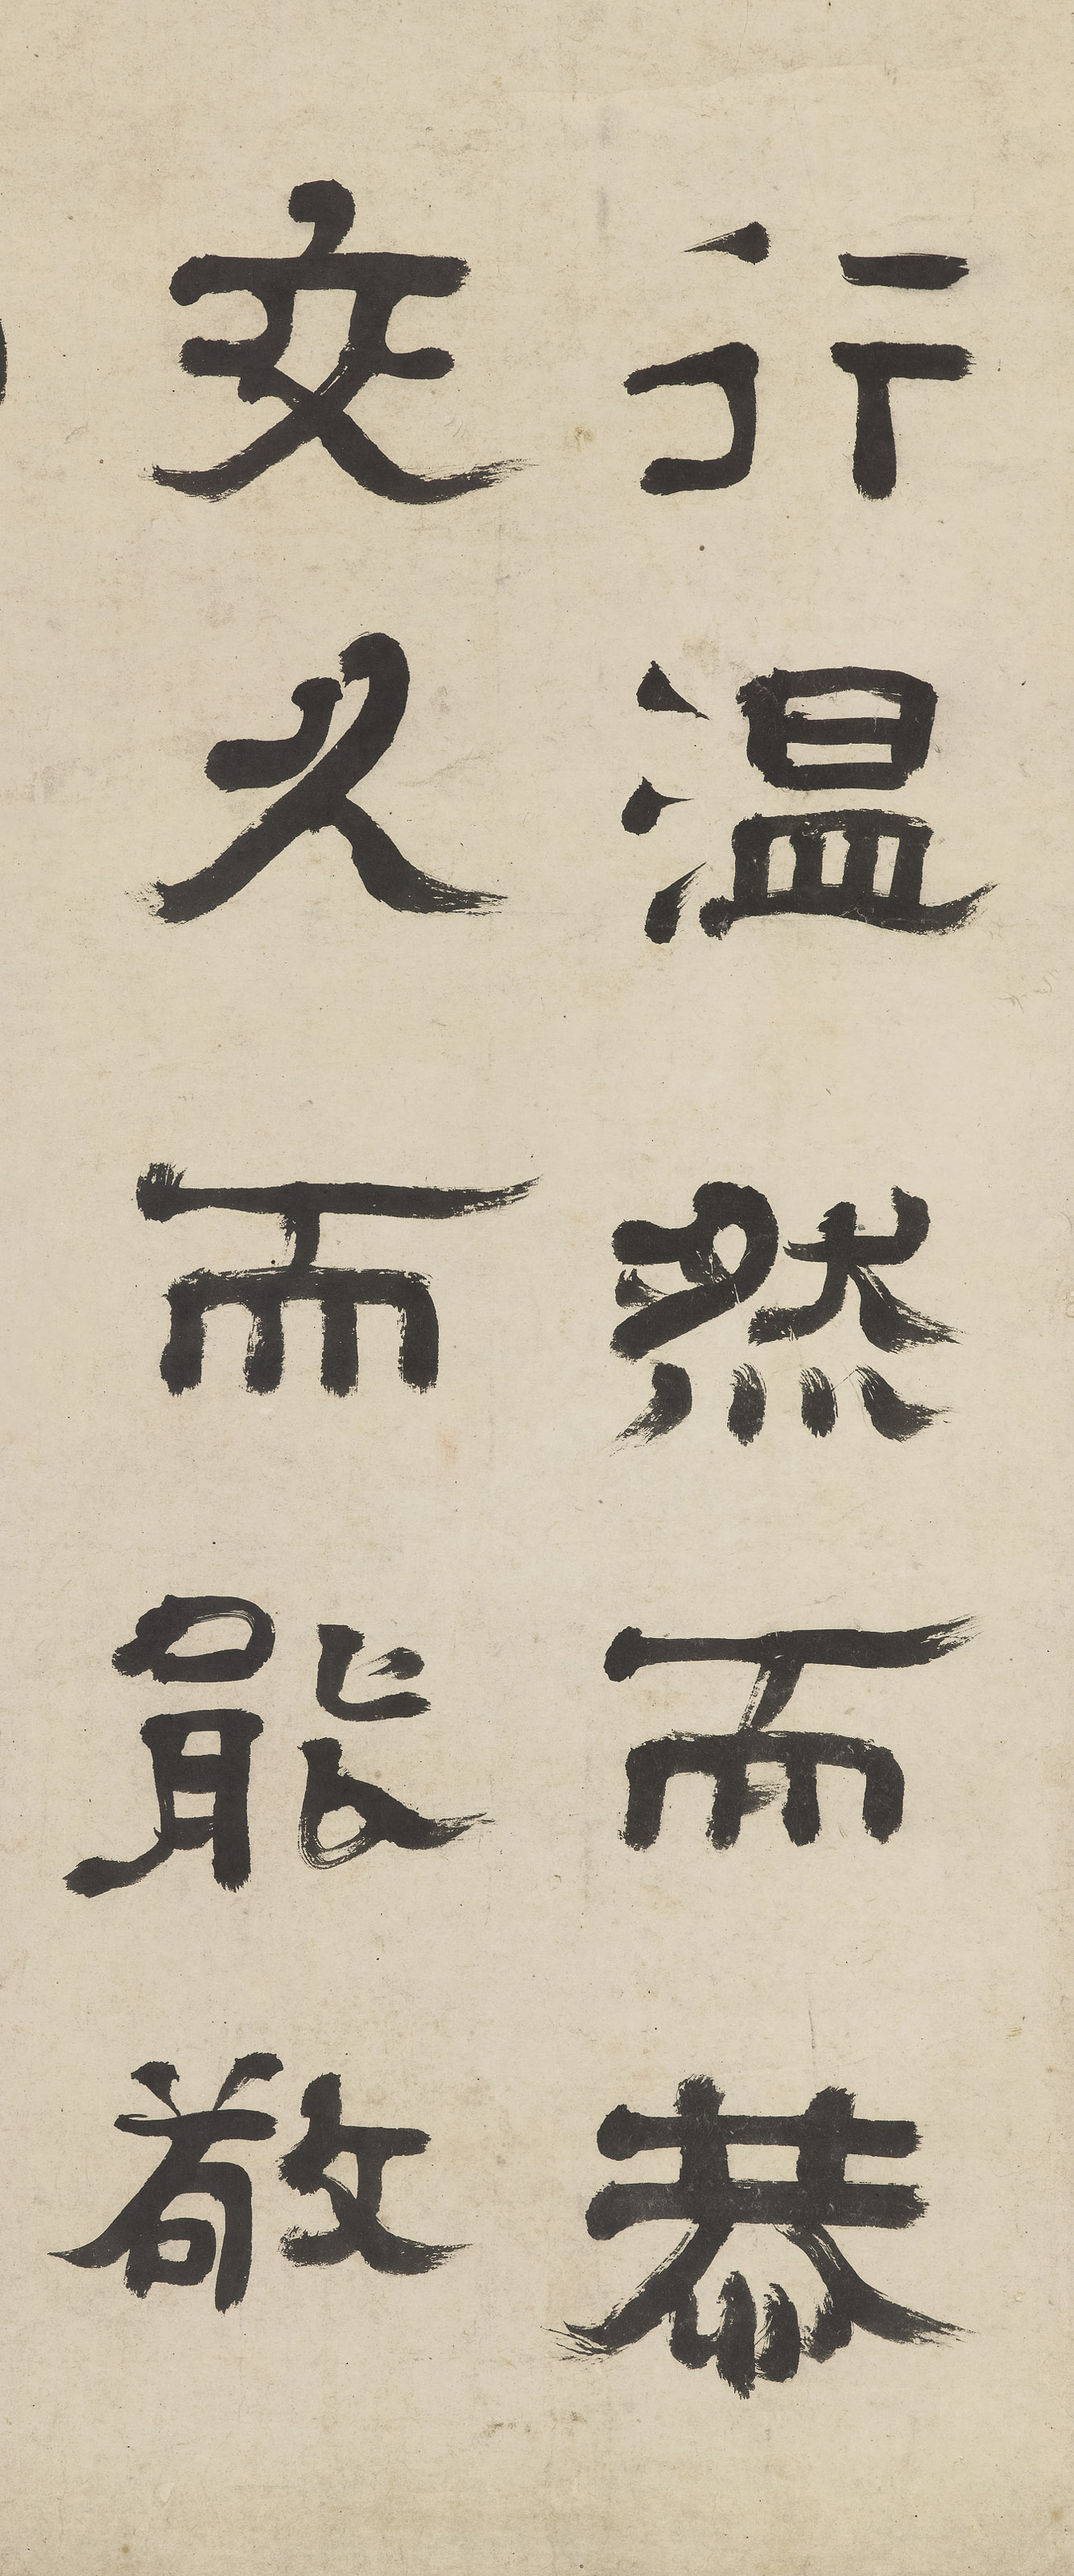 行温然而恭
交久而能敬